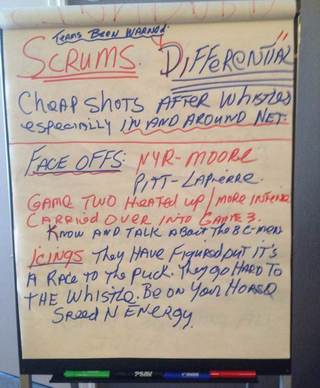 Teams Been Warned.
SCRUMS. DIFFERENTIAL
CHEAP SHOTS AFTER WHISTLES
especially IN AND AROUND NET.
FACE OFFS: NYR-MOORE
PITT-LAPIERRE.
GAME TWO HEATED UP / MORE INTENSE
CARRIED OVER INTO GAME 3.
KNOW AND TALK ABOUT THE 8 C-MEN
ICINGS THEY HAVE FIGURED OUT IT'S
A RACE TO THE PUCK. THEY GO HARD TO
THE WHISTLE. BE ON YOUR HORSE
SPEED N ENERGY